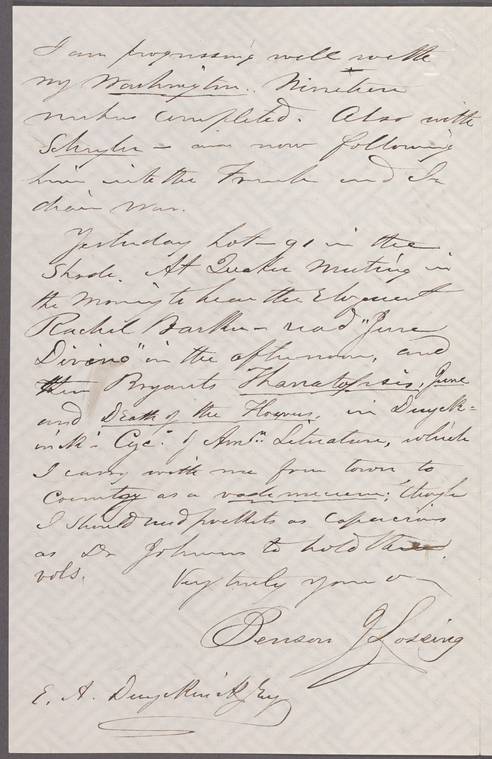 I am progressing well with
my Washington. Nineteen
numbers completed. Also with
Schuyler – am now following
him into the French and In
dian War.
Yesterday hot – 91 in the
Shade. At Quaker Meeting in
the Morning to hear the Eloquent
Rachel Barker – read "June
Divine" in the afternoon, and
then Bryant's Thanatopsis, June
and Death of the Flowers, in Duyck=
inck's Cyc. of Amn. Literature, which
I carry with me from town to
Country as a vade mecum; though
I should need pockets as capacious
as Dr Johnson's to hold the
vols.
Very truly yours
Benson J Lossing
E. A. Duyckinck, Esq